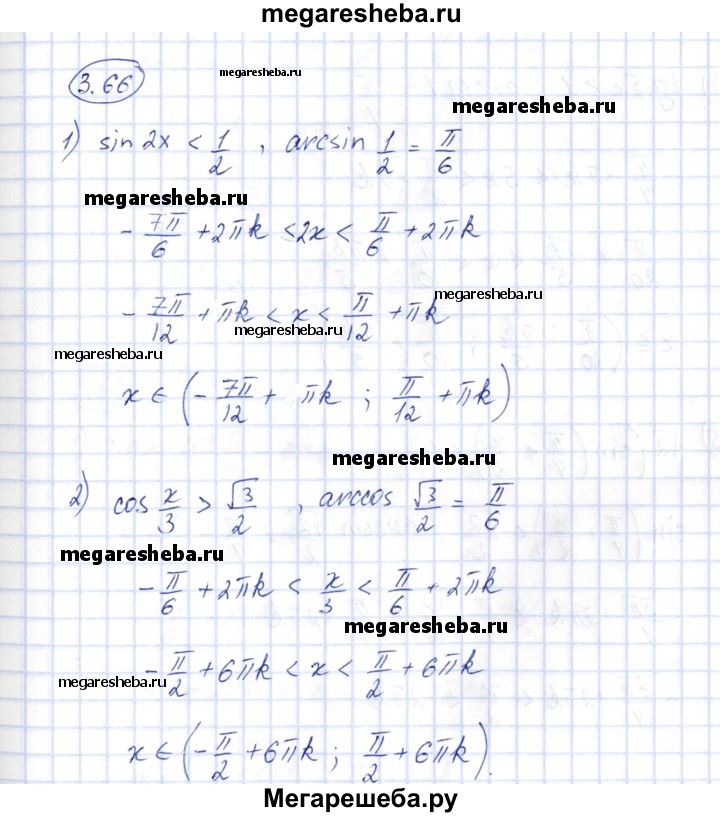 megaresheba.ru
3.66
megaresheba.ru
megaresheba.ru
1) sin 2x < 1/2 , arcsin 1/2 = π/6
megaresheba.ru
- 7π/6 + 2πk < 2x < π/6 + 2πk
megaresheba.ru
- 7π/12 + πk < x < π/12 + πk
megaresheba.ru
megaresheba.ru
x ∈ (- 7π/12 + πk ; π/12 + πk)
megaresheba.ru
2) cos x/3 > √3/2 , arccos √3/2 = π/6
megaresheba.ru
- π/6 + 2πk < x/3 < π/6 + 2πk
megaresheba.ru
- π/2 + 6πk < x < π/2 + 6πk
megaresheba.ru
x ∈ (- π/2 + 6πk ; π/2 + 6πk).
Мегарешеба.ру